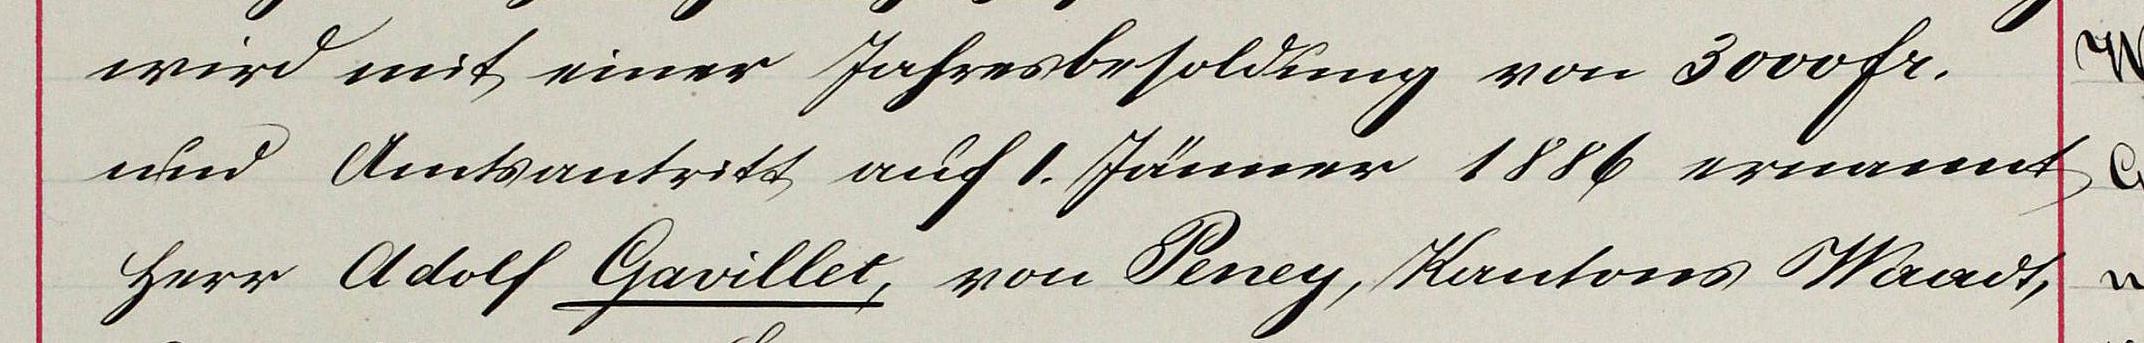 wird mit einer Jahresbesoldung von 3000 fr.
und Amtsantritt auf 1. Jänner 1886 ernannt
Herr Adolf Gavillet, von Peney, Kantons Waadt,